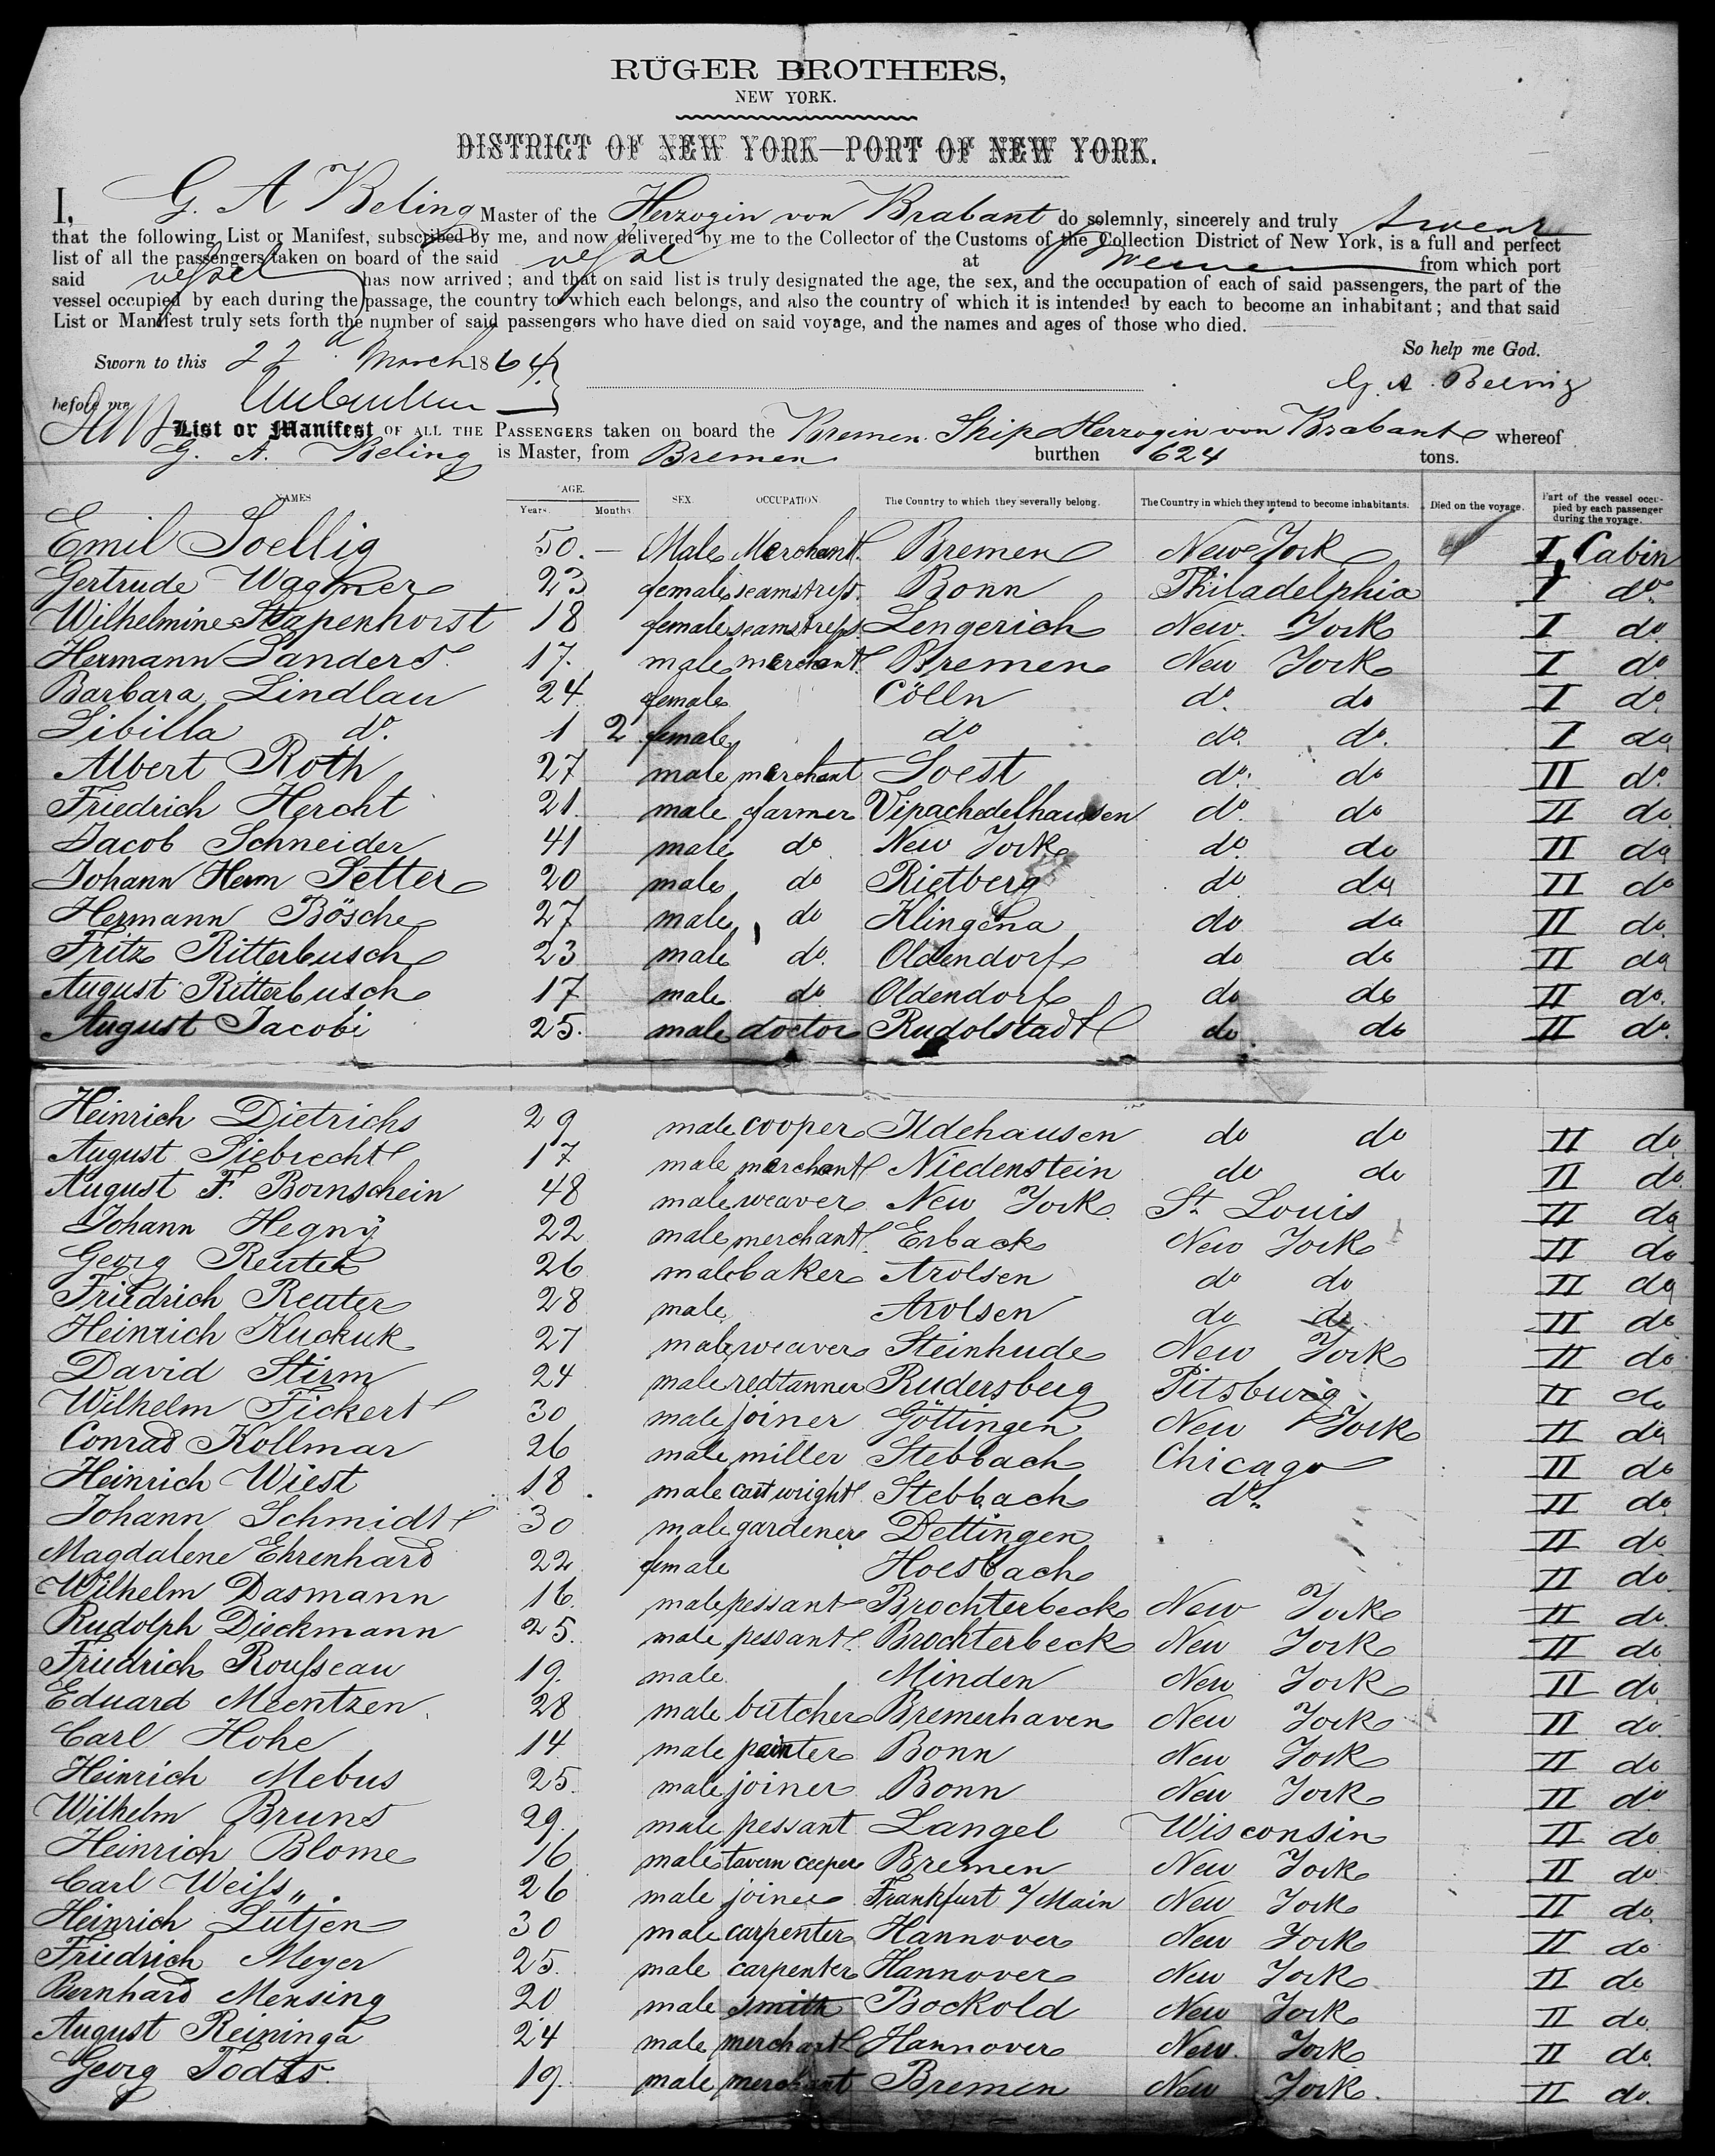 RÜGER BROTHERS,
NEW YORK.
DISTRICT OF NEW YORK—PORT OF NEW YORK.
I, G. A Beling Master of the Herzogin von Brabant do solemnly, sincerely and truly swear
that the following List or Manifest, subscribed by me, and now delivered by me to the Collector of the Customs of the Collection District of New York, is a full and perfect
list of all the passengers taken on board of the said vessel at Bremen from which port
said vessel has now arrived; and that on said list is truly designated the age, the sex, and the occupation of each of said passengers, the part of the
vessel occupied by each during the passage, the country to which each belongs, and also the country of which it is intended by each to become an inhabitant; and that said
List or Manifest truly sets forth the number of said passengers who have died on said voyage, and the names and ages of those who died.
Sworn to this 22 d March 1864 So help me God.
before me G. A. Beling
List or Manifest OF ALL THE PASSENGERS taken on board the Bremen Ship Herzogin von Brabant whereof
G. A. Beling is Master, from Bremen burthen 624 tons.
NAMES AGE. Years. Months. SEX. OCCUPATION. The Country to which they severally belong. The Country in which they intend to become inhabitants. Died on the voyage. Part of the vessel occupied by each passenger during the voyage.
Emil Soellig 50. — Male Merchant. Bremen New York I Cabin
Gertrude Wagner 23 female seamstress. Bonn Philadelphia I do.
Wilhelmine Stapenhorst 18 female seamstress. Lengerich New York I do
Hermann Sanders 17. male merchant. Bremen New York I do
Barbara Lindlau 24 female Cölln do. do I do
Sibilla do. 1 2 female do do. do. I do
Albert Roth 27 male merchant Soest do. do II do.
Friedrich Hercht 21. male farmer Vipachedelhausen do. do II do
Jacob Schneider 41 male do New York do. do II do
Johann Herm Setter 20 male do Rietberg do do II do
Hermann Bösche 27 male do Klingena do do II do.
Fritz Ritterbusch 23 male do. Oldendorf do do II do
August Ritterbusch 17 male do Oldendorf do do II do.
August Jacobi 25. male doctor Rudolstadt do. do II do.
Heinrich Dietrichs 29 male cooper Ildehausen do do II do
August Siebrecht 17 male merchant Niedenstein do do II do.
August F. Bornschein 48 male weaver New York St. Louis II do
Johann Hegny 22 male merchant Erback New York II do
Georg Reuter 26 male baker Arolsen do do II do
Friedrich Reuter 28 male Arolsen do do II do
Heinrich Kuckuk 27 male weaver Steinhude New York II do
David Stirm 24 male redtanner Rudersberg Pitsburg II do
Wilhelm Fickert 30 male joiner Göttingen New York II do
Conrad Kollmar 26 male miller Stebbach Chicago II do
Heinrich Wiest 18. male cartwright Stebbach do. II do
Johann Schmidt 30 male gardener Dettingen II do
Magdalene Ehrenhard 22 female Hoesbach II do
Wilhelm Dasmann 16 male pessant Brochterbeck New York II do.
Rudolph Dieckmann 25. male pessant. Brochterbeck New York II do
Friedrich Rousseau 19. male Minden New York II do
Eduard Meentzen. 28 male butcher Bremerhaven New York II do.
Carl Hohe 14 male painter Bonn New York II do
Heinrich Mebus 25. male joiner Bonn New York II do
Wilhelm Bruns 29. male pessant Langel Wisconsin II do
Heinrich Blome 16 male tavern ceeper Bremen New York II do
Carl Weiss 26 male joiner Frankfurt a/Main New York II do.
Heinrich Lutjen 30 male carpenter Hannover New York II do
Friedrich Meyer 25. male carpenter Hannover New York II do
Bernhard Mensing 20 male smith Bockold New York II do.
August Reininga 24 male merchant Hannover New York II do
Georg Todts. 19. male merchant Bremen New York. II do.